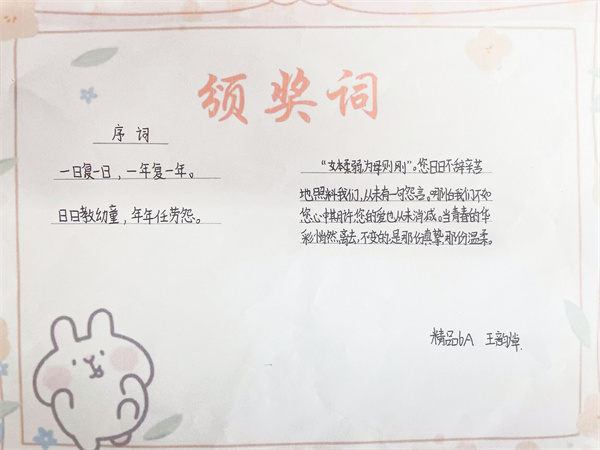 颁奖词
序词
一日复一日，一年复一年。
日日教幼童，年年任劳怨。
“女本柔弱为母则刚”。您日日不辞辛苦
地照料我们，从未有一句怨言。哪怕我们不如
您心中期许您的爱也从未消减。当青春的华
彩悄然离去，不变的是那份真挚，那份温柔。
精品6A 王韵焯